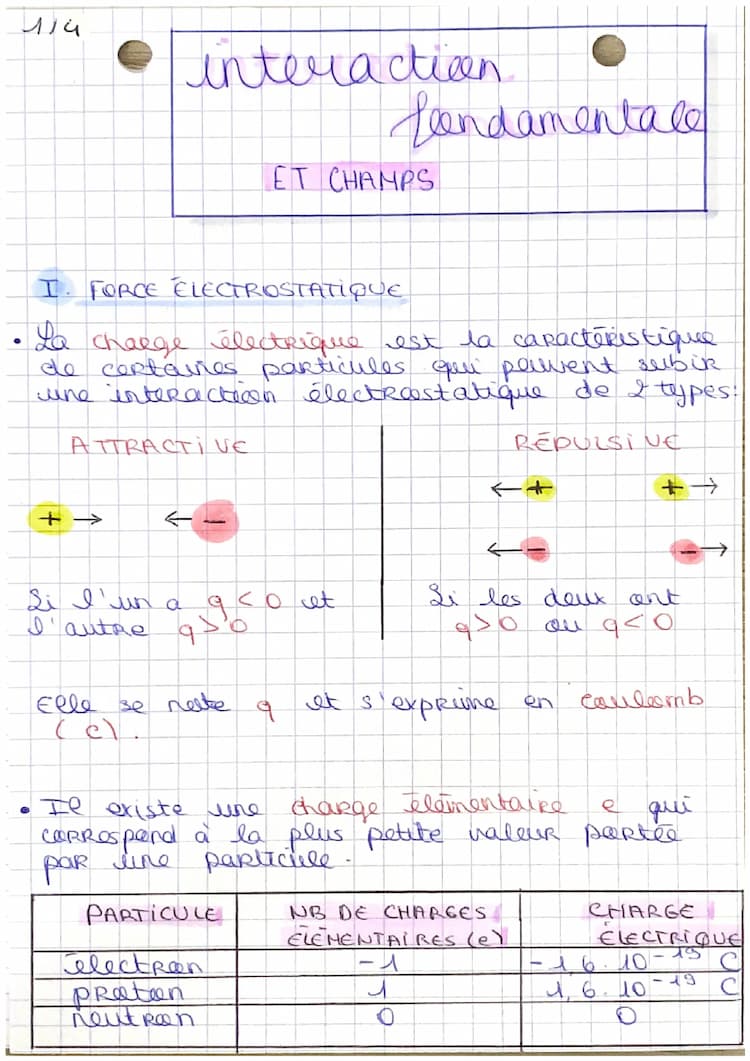 1/4
interaction
fondamentale
ET CHAMPS
I. FORCE ÉLECTROSTATIQUE
• La charge électrique est la caractéristique
de certaines particules qui peuvent subir
une interaction électrostatique de 2 types:
ATTRACTIVE
+ → ← -
Si l'un a q<0 et
l'autre q>0
RÉPULSIVE
← + + →
← - - →
Si les deux ont
q>0 ou q<0
Elle se note q et s'exprime en coulomb
(c).
• Il existe une charge élémentaire e qui
correspond à la plus petite valeur portée
par une particule.
PARTICULE NB DE CHARGES ÉLÉMENTAIRES (e) CHARGE ÉLECTRIQUE
électron -1 -1,6.10-19 C
proton 1 1,6.10-19 C
neutron 0 0